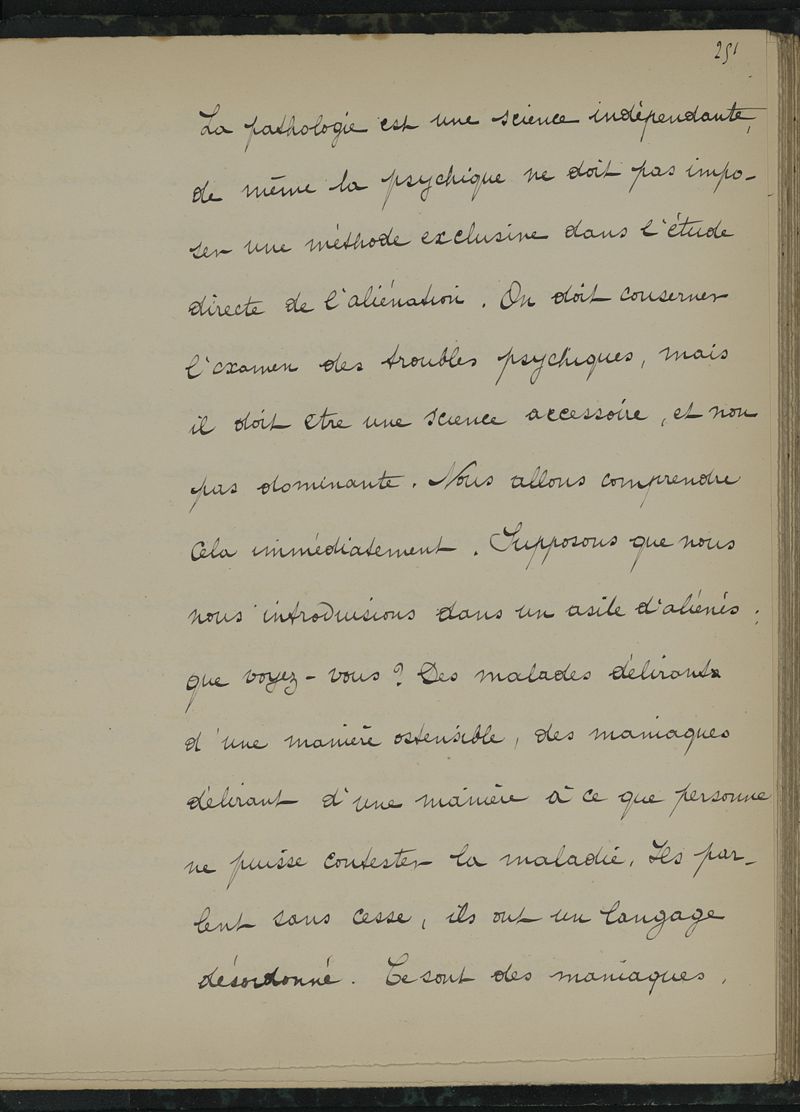 251
La pathologie est une science indépendante,
de même la psychique ne doit pas impo-
ser une méthode exclusive dans l'étude
directe de l'aliénation. On doit conserver
l'examen des troubles psychiques, mais
il doit etre une science accessoire, et non
pas dominante. Nous allons comprendre
cela immédiatement. Supposons que nous
nous introduisions dans un asile d'aliénés :
que voyez-vous ? Des malades délirants
d'une manière ostensible, des maniaques
délirant d'une manière à ce que personne
ne puisse contester la maladie. Ils par-
lent sans cesse, ils ont un langage
désordonné. Ce sont des maniaques.